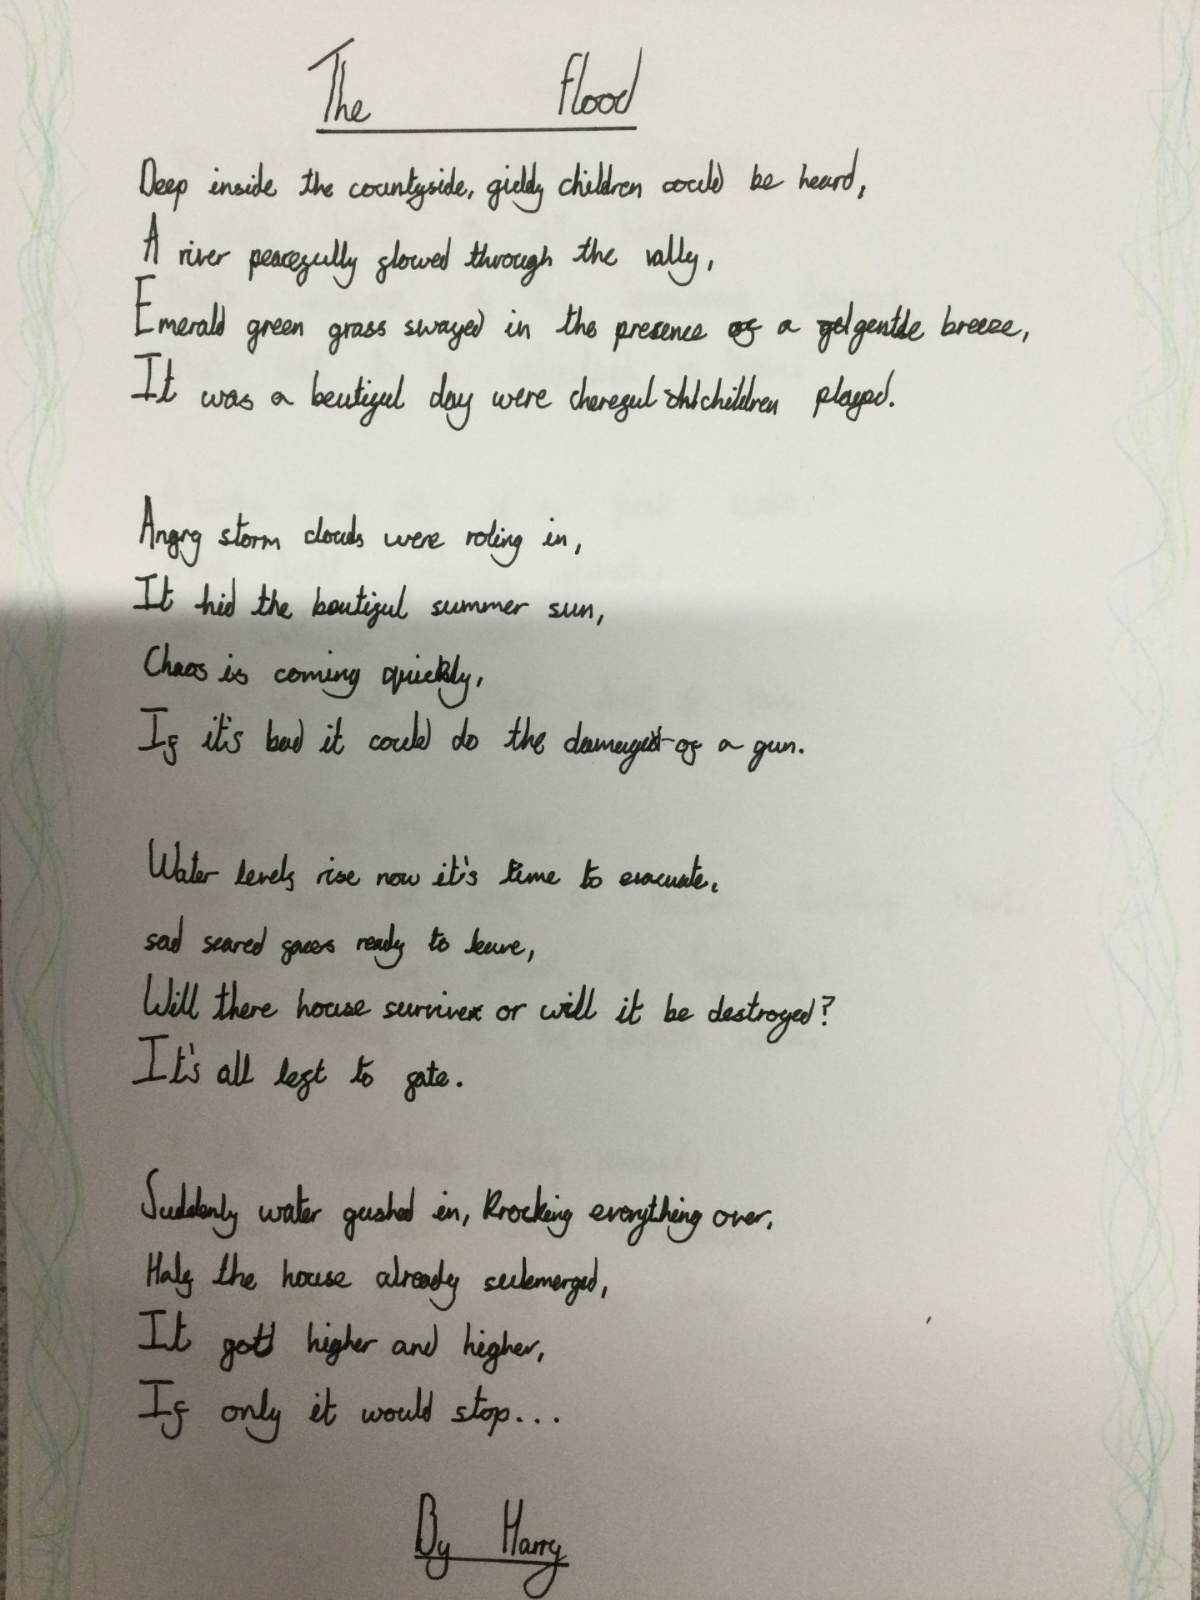 The flood
Deep inside the countyside, giddy children could be heard,
A river peacefully flowed through the vally,
Emerald green grass swayed in the presence of a gentle breeze,
It was a beutiful day were chereful children played.
Angry storm clouds were roling in,
It hid the beutiful summer sun,
Chaos is coming quickly,
If it's bad it could do the damage of a gun.
Water levels rise now it's time to evacuate,
sad scared faces ready to leave,
Will there house survive or will it be destroyed?
It's all left to fate.
Suddenly water gushed in, Rrocking everything over,
Half the house already submerged,
It got higher and higher,
If only it would stop...
By Harry